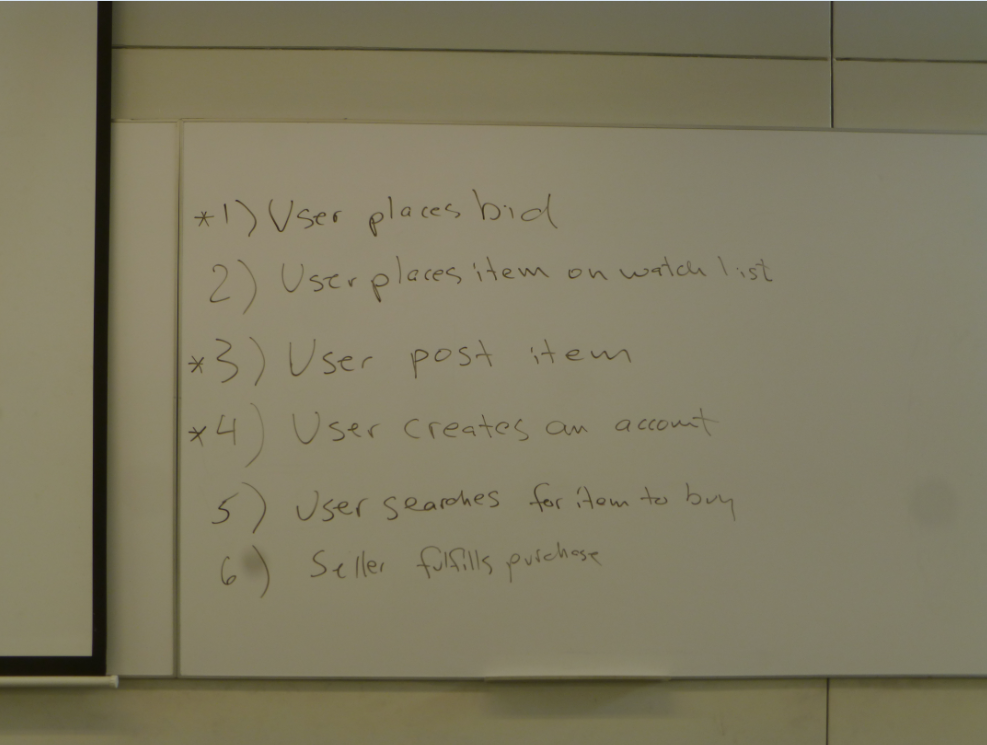 *1) User places bid
2) User places item on watch list
*3) User post item
*4) User creates an account
5) User searches for item to buy
6) Seller fulfills purchase